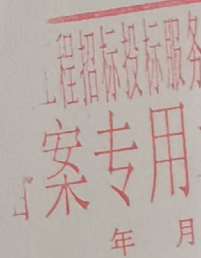 程招标投标服务
案专用
年 月